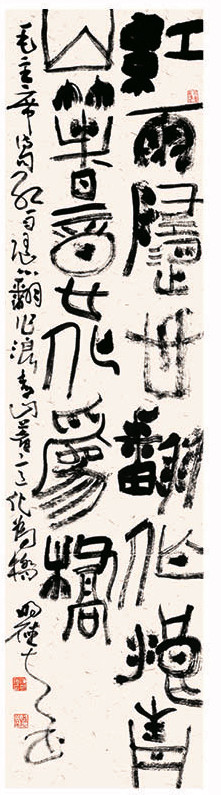 紅雨隨心翻作浪青
山著意化為橋
毛主席詩紅雨隨心翻作浪青山著意化為橋